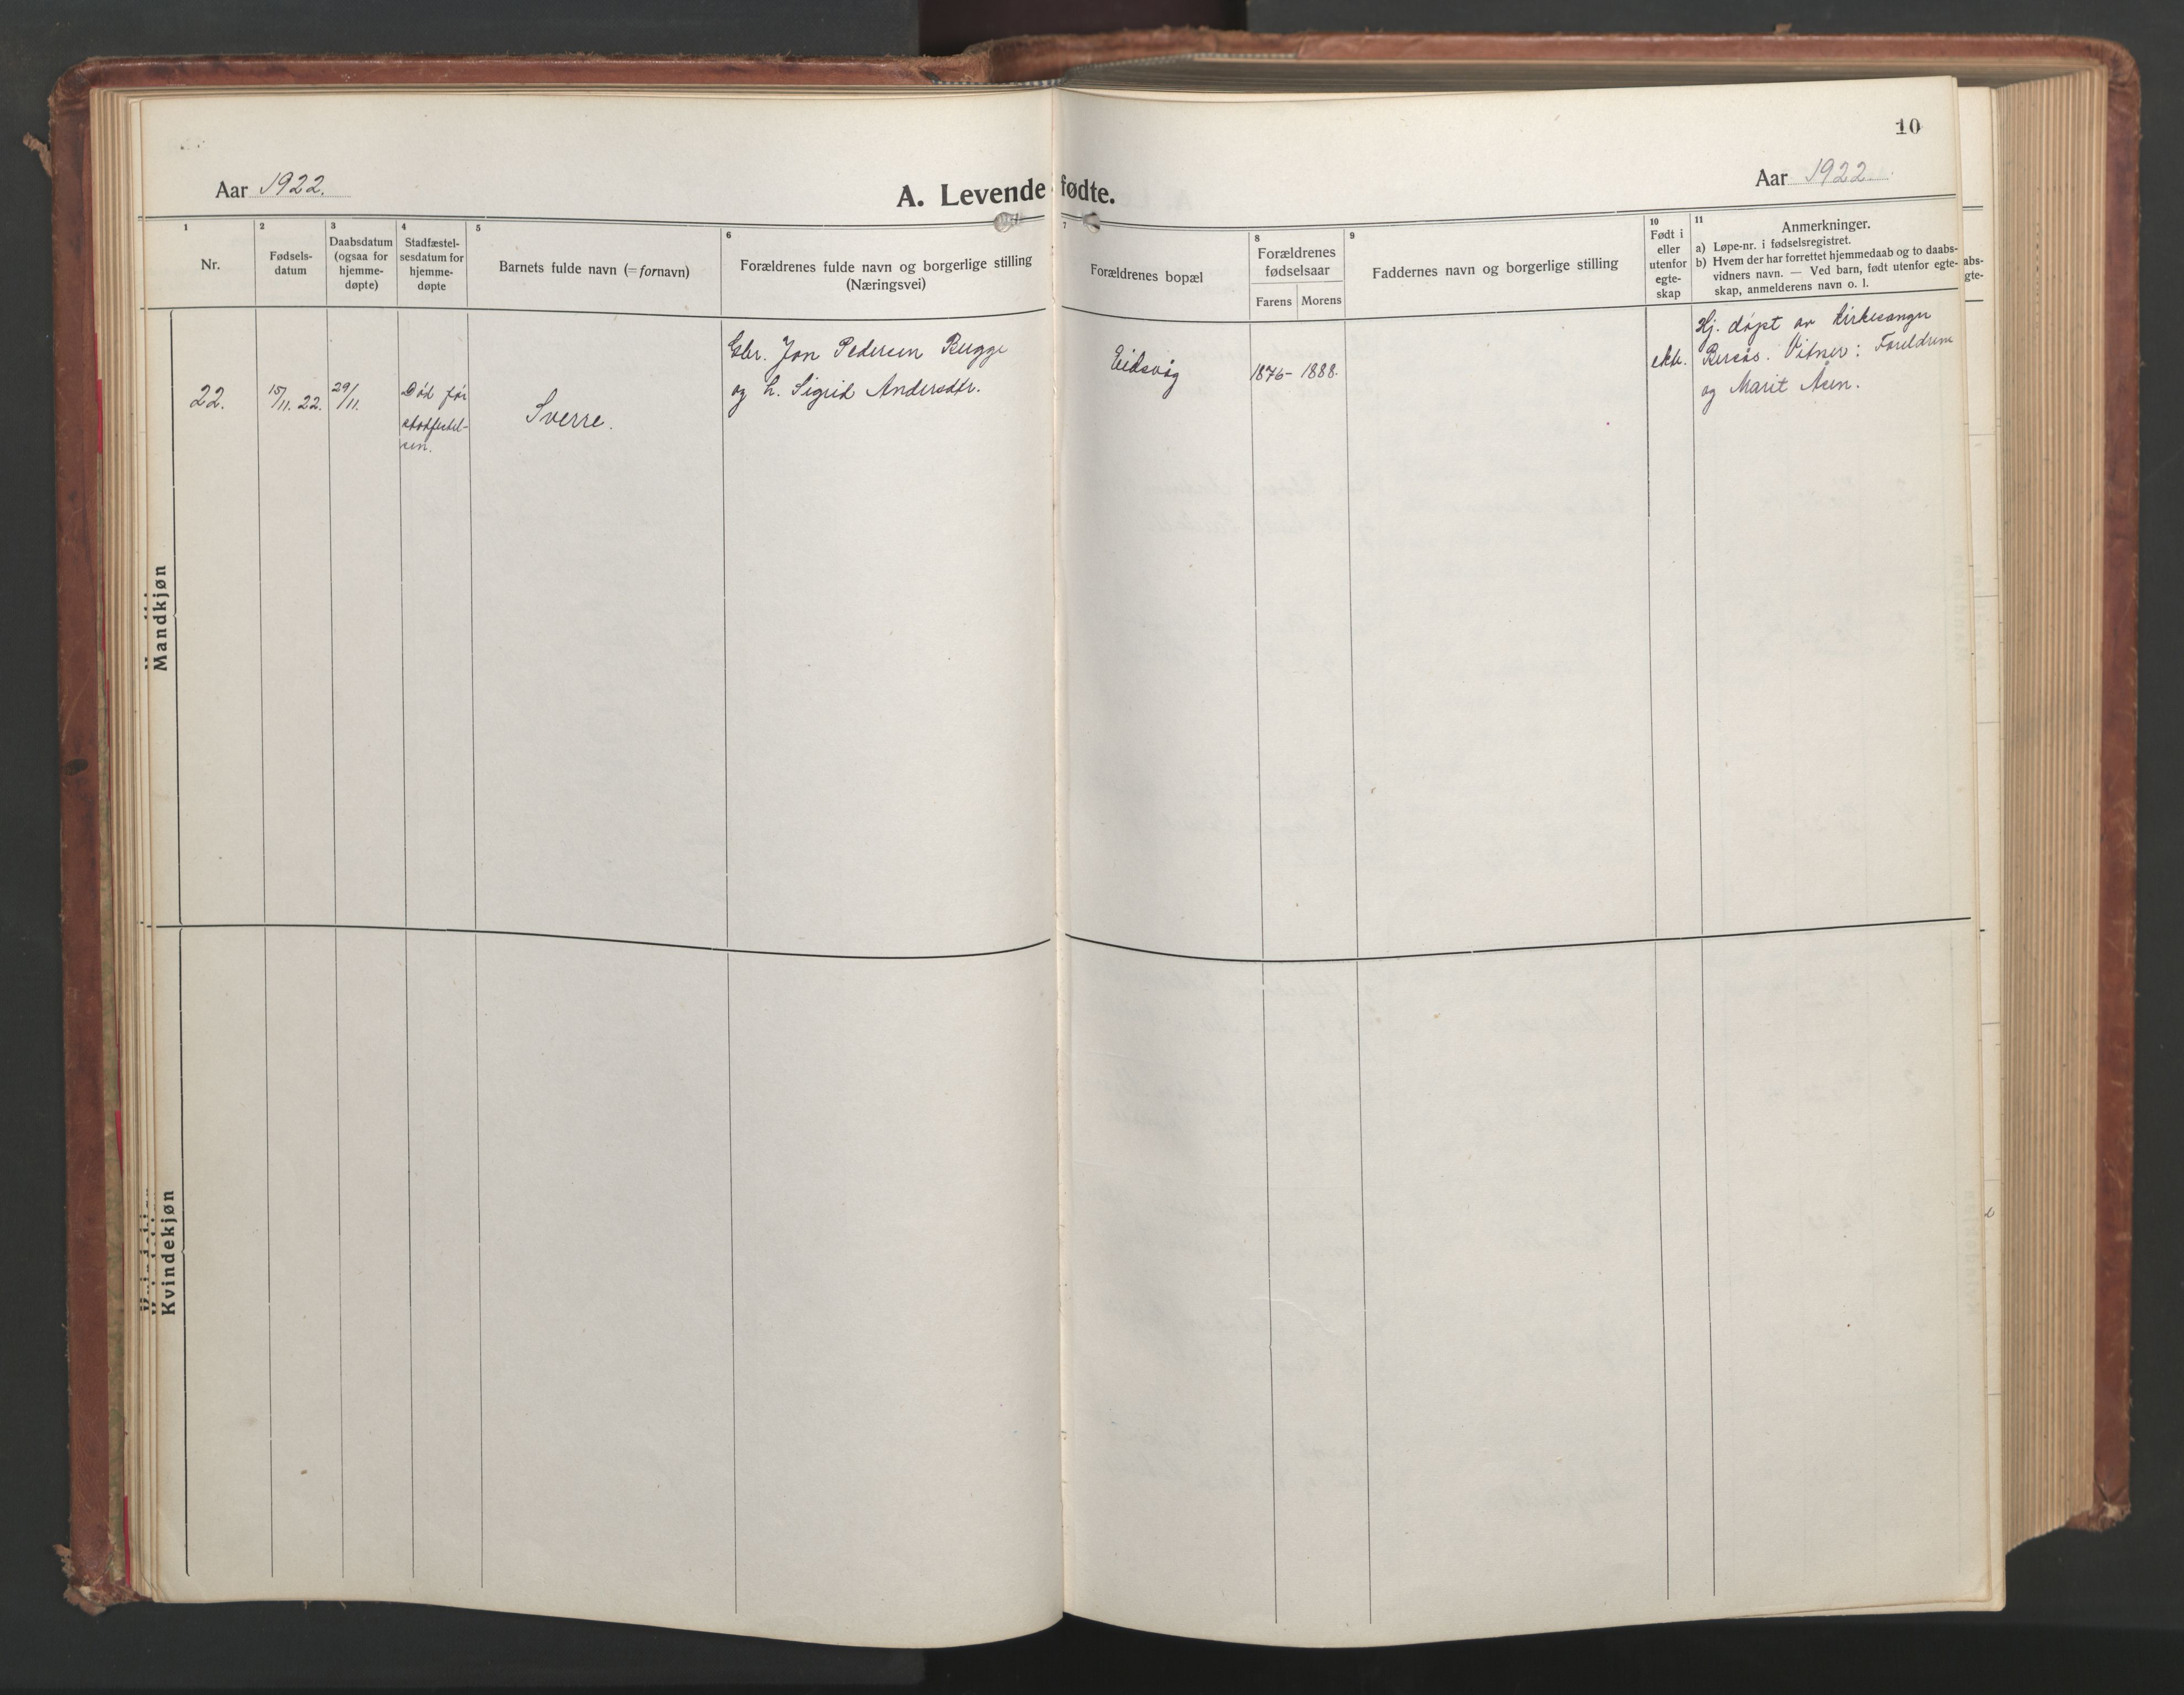 10
Aar 1922.
A. Levendefødte.
Aar 1922.
1
Nr.
2
Fødsels-
datum
3
Daabsdatum
(ogsaa for
hjemme-
døpte)
4
Stadfæstel-
sesdatum for
hjemme-
døpte
5
Barnets fulde navn (= fornavn)
6
Forældrenes fulde navn og borgerlige stilling
(Næringsvei)
7
Forældrenes bopæl
8
Forældrenes
fødselsaar
Farens Morens
9
Faddernes navn og borgerlige stilling
10
Født i
eller
utenfor
egte-
skap
11
Anmerkninger.
a) Løpe-nr. i fødselsregistret.
b) Hvem der har forrettet hjemmedaab og to daabs-
vidners navn. — Ved barn, født utenfor egte-
skap, anmelderens navn o. l.
abs-
gte-
Mandkjøn
22.
15/11. 22.
29/11.
Død før
stadfestel-
sen.
Sverre.
Gbr. Jon Pedersen Bugge
og h. Sigrid Andersdtr.
Eidsvåg
1876- 1888.
ekte.
Hj. døpt av kirkesanger
Bersås. Vitner: Foreldrene
og Marit Åsen.
Kvindekjøn